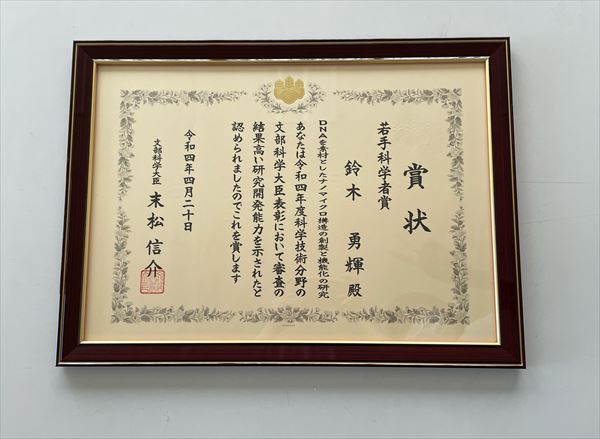 賞状
若手科学者賞
鈴木 勇輝 殿
DNAを素材としたナノマイクロ構造の創製と機能化の研究
あなたは令和四年度科学技術分野の
文部科学大臣表彰において審査の
結果高い研究開発能力を示されたと
認められましたのでこれを賞します
令和四年四月二十日
文部科学大臣 末松信介